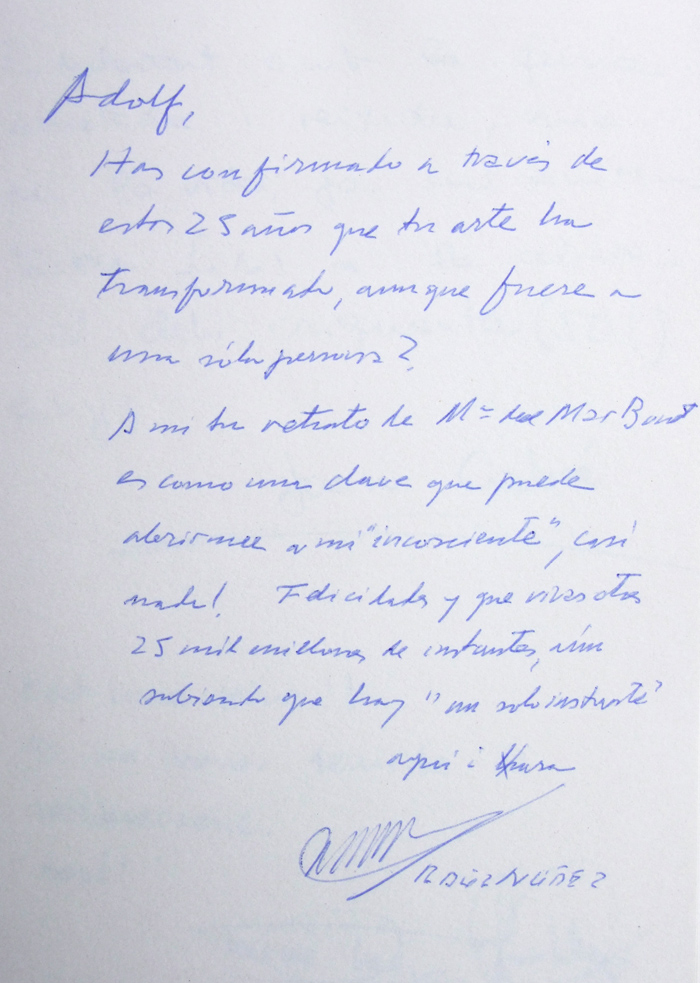 Adolf,
Has confirmado a través de
estos 25 años que tu arte ha
transformado, aunque fuere a
una sóla persona?
A mi tu retrato de Mª del Mar Bonet
es como una clave que puede
abrirmee a mi "incosciente", casi
nada! Felicidades y que vivas otros
25 mil millones de instantes, aún
sabiendo que hay "un solo instante"
aquí i
RAÚL NÚÑEZ